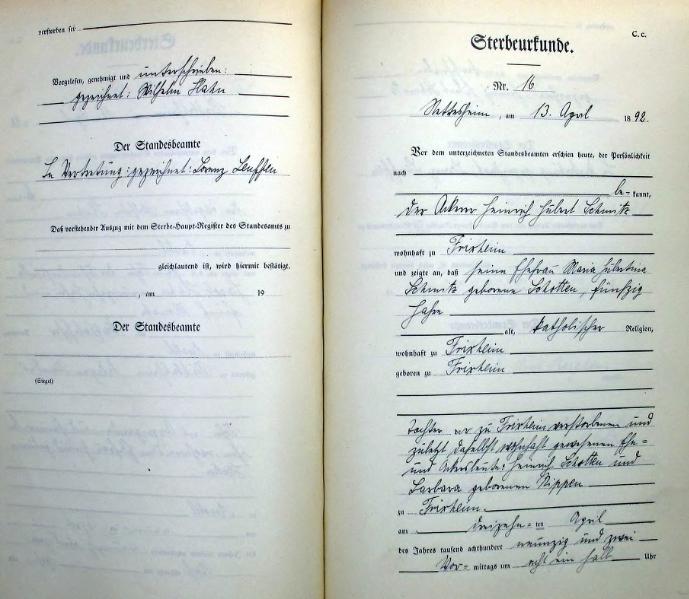 verstorben sei
Vorgelesen, genehmigt und unterschrieben:
gezeichnet: Wilhelm Hahn
Der Standesbeamte
In Vertretung: gezeichnet: Lorenz Leuffen
Daß vorstehender Auszug mit dem Sterbe-Haupt-Register des Standesamts zu
gleichlautend ist, wird hiermit bestätigt.
, am 19
Der Standesbeamte
(Siegel)
C. c.
Sterbeurkunde.
Nr. 16
Nettesheim, am 13. April 1892.
Vor dem unterzeichneten Standesbeamten erschien heute, der Persönlichkeit
nach
be- kannt,
der Ackerer Heinrich Hubert Schmitz
wohnhaft zu Frixheim
und zeigte an, daß seine Ehefrau Maria Hubertina
Schmitz geborene Schotten, fünfzig
Jahre
alt, katholischer Religion,
wohnhaft zu Frixheim
geboren zu Frixheim
Tochter der zu Frixheim verstorbenen und
zuletzt daselbst wohnhaft gewesenen Ehe-
und Ackersleute Heinrich Schotten und
Barbara geborenen Nippen
zu Frixheim
am dreizehn-ten April
des Jahres tausend achthundert neunzig und zwei
Vor- mittags um acht ein halb Uhr